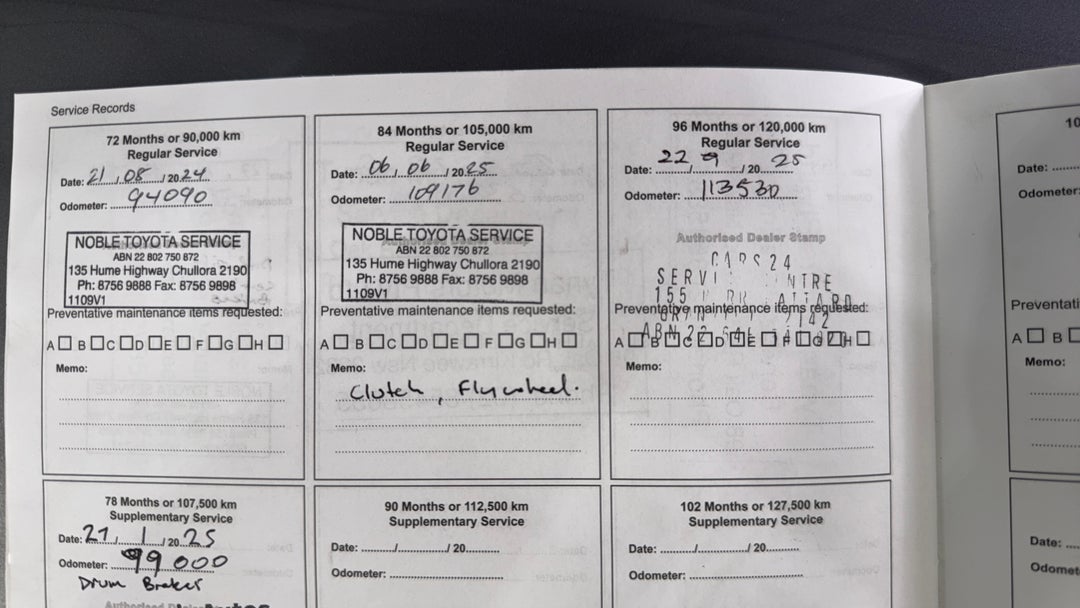 Service Records
72 Months or 90,000 km
Regular Service
Date: 21/08/2024
Odometer: 94090
NOBLE TOYOTA SERVICE
ABN 22 802 750 872
135 Hume Highway Chullora 2190
Ph: 8756 9888 Fax: 8756 9898
1109V1
Preventative maintenance items requested:
A B C D E F G H
Memo:
84 Months or 105,000 km
Regular Service
Date: 06/06/2025
Odometer: 109176
NOBLE TOYOTA SERVICE
ABN 22 802 750 872
135 Hume Highway Chullora 2190
Ph: 8756 9888 Fax: 8756 9898
1109V1
Preventative maintenance items requested:
A B C D E F G H
Memo:
Clutch, Flywheel.
96 Months or 120,000 km
Regular Service
Date: 22/9/2025
Odometer: 113530
Authorised Dealer Stamp
CARS24
155
Preventative maintenance items requested:
A B C D E F G H
Memo:
78 Months or 107,500 km
Supplementary Service
Date: 27/1/2025
Odometer: 99000
Drum Brakes
90 Months or 112,500 km
Supplementary Service
Date: / / 20
Odometer:
102 Months or 127,500 km
Supplementary Service
Date: / / 20
Odometer:
10
Date:
Odometer:
A B
Memo:
Date: